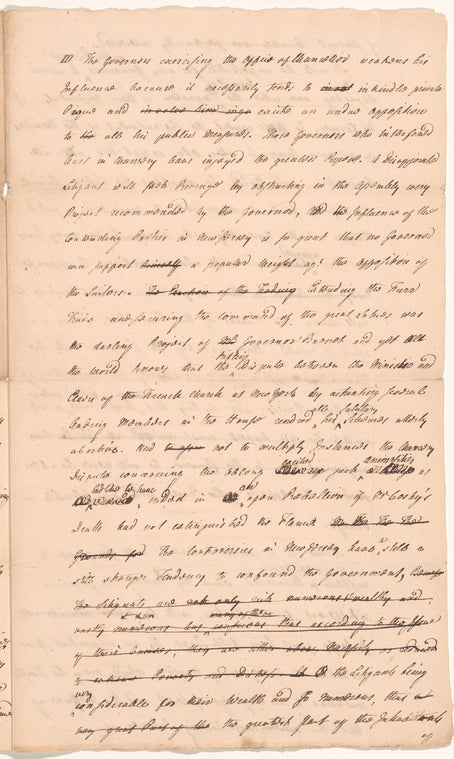 III The Governor exercising the Office of Chancellor weakens his
Influence because it necessarily tends to inkindle private
Pique and involve him in excite an undue Opposition
to all his public Measures. Those Governors who interfered
least in Chancery have injoyed the greatest Repose. A disappointed
Litigant will seek Revenge by obstructing in the Assembly every
Project recommended by the Governor, And the Influence of the
Contending Parties in New Jersey is so great that no Governor
can support himself a popular weight agt the opposition of
the Suitors. The of the Trading Extending the Furr
Trade and securing the command of the great Lakes was
the darling Project of Governor Burnet and yet all
the world knows that the trifling Dispute between the Minister and
of the French Church at New York by activating several
leading Members in the House rendred all his salutary Schemes utterly
abortive. And not to multiply Instances the Chancery
Dispute concerning the oblong excited such animosities as
would have ended in an open Rebellion if Mr Cosby's
Death had not extinguished the Flame. In the The the
Grounds for The Controversies in New Jersey have still a
still stronger Tendency to confound the Government,
The Litigants are not only numerous & wealthy and
numerous but that according to the Issue
of their Success, they are either
to extreme Poverty and Distress. the Litigants being
very considerable for their Wealth and so numerous, that
very great Part of the the greatest part of the Inhabitants
of